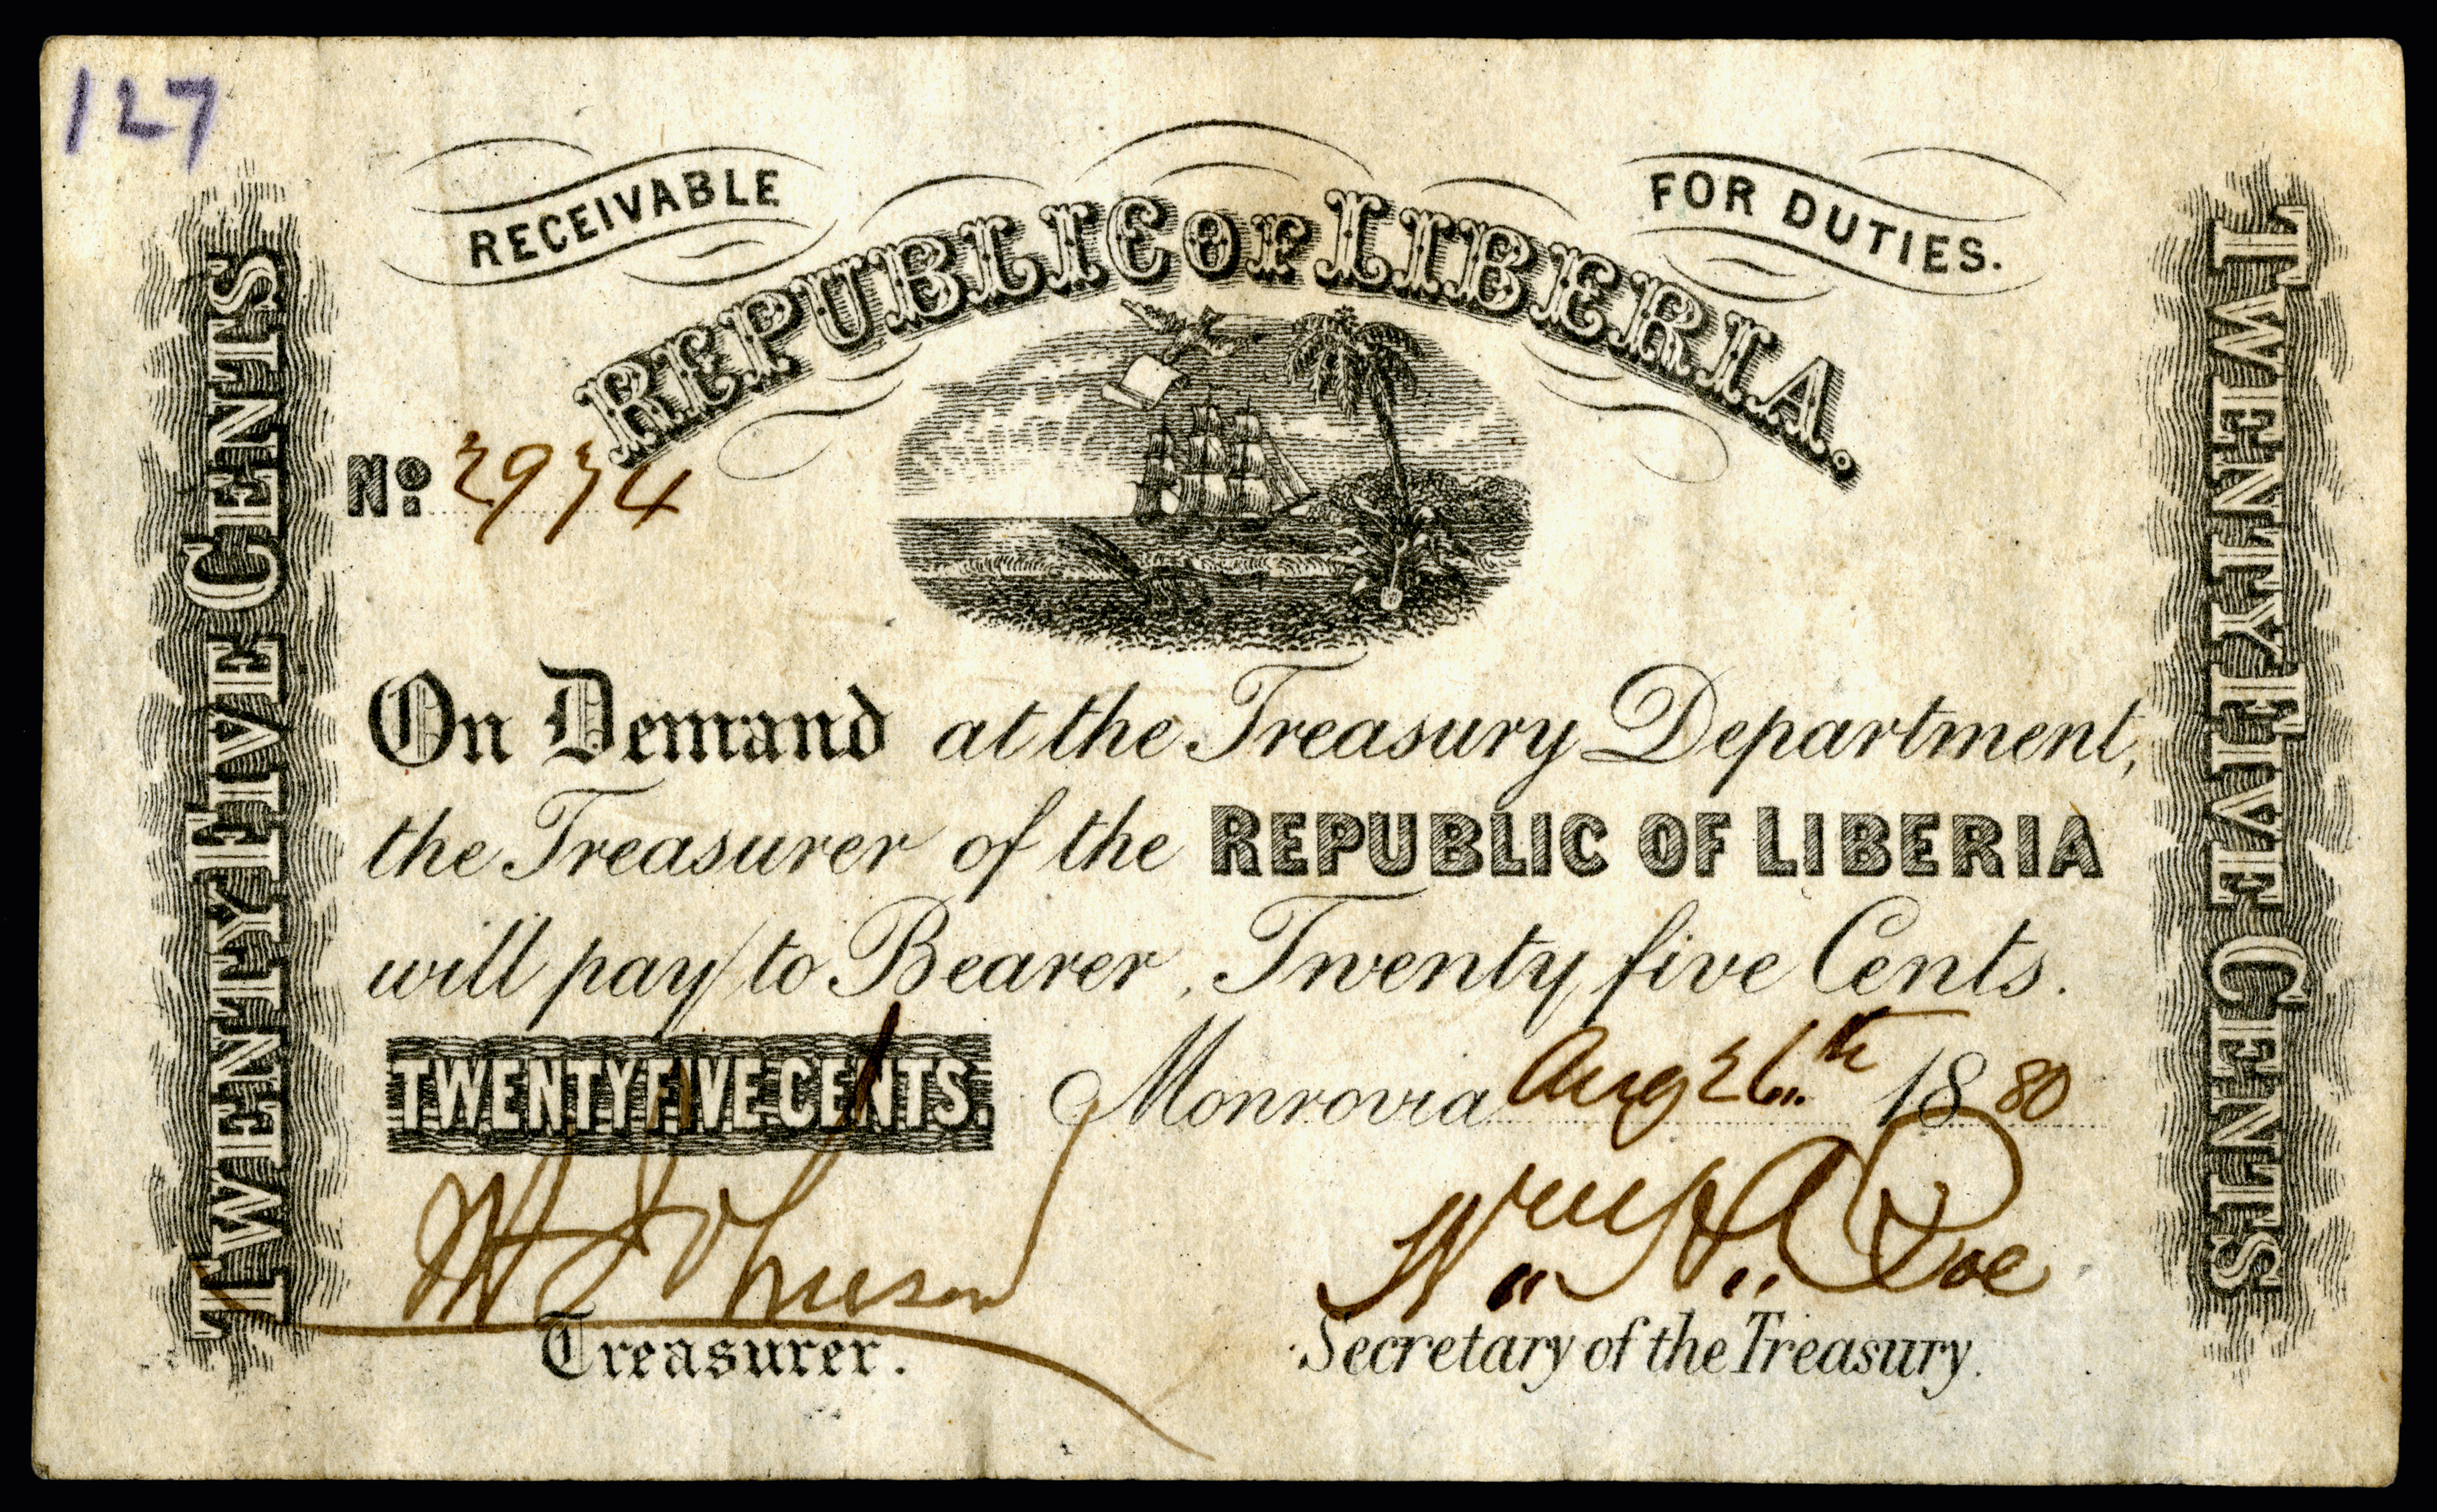 127
RECEIVABLE
FOR DUTIES.
REPUBLIC OF LIBERIA.
TWENTY FIVE CENTS
TWENTY FIVE CENTS
No. 2974
On Demand at the Treasury Department,
the Treasurer of the REPUBLIC OF LIBERIA
will pay to Bearer, Twenty five Cents.
TWENTY FIVE CENTS.
Monrovia Aug 26th 1880
Treasurer.
Secretary of the Treasury.